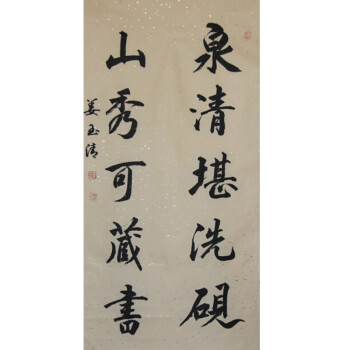 泉清堪洗硯
山秀可藏書
姜玉清